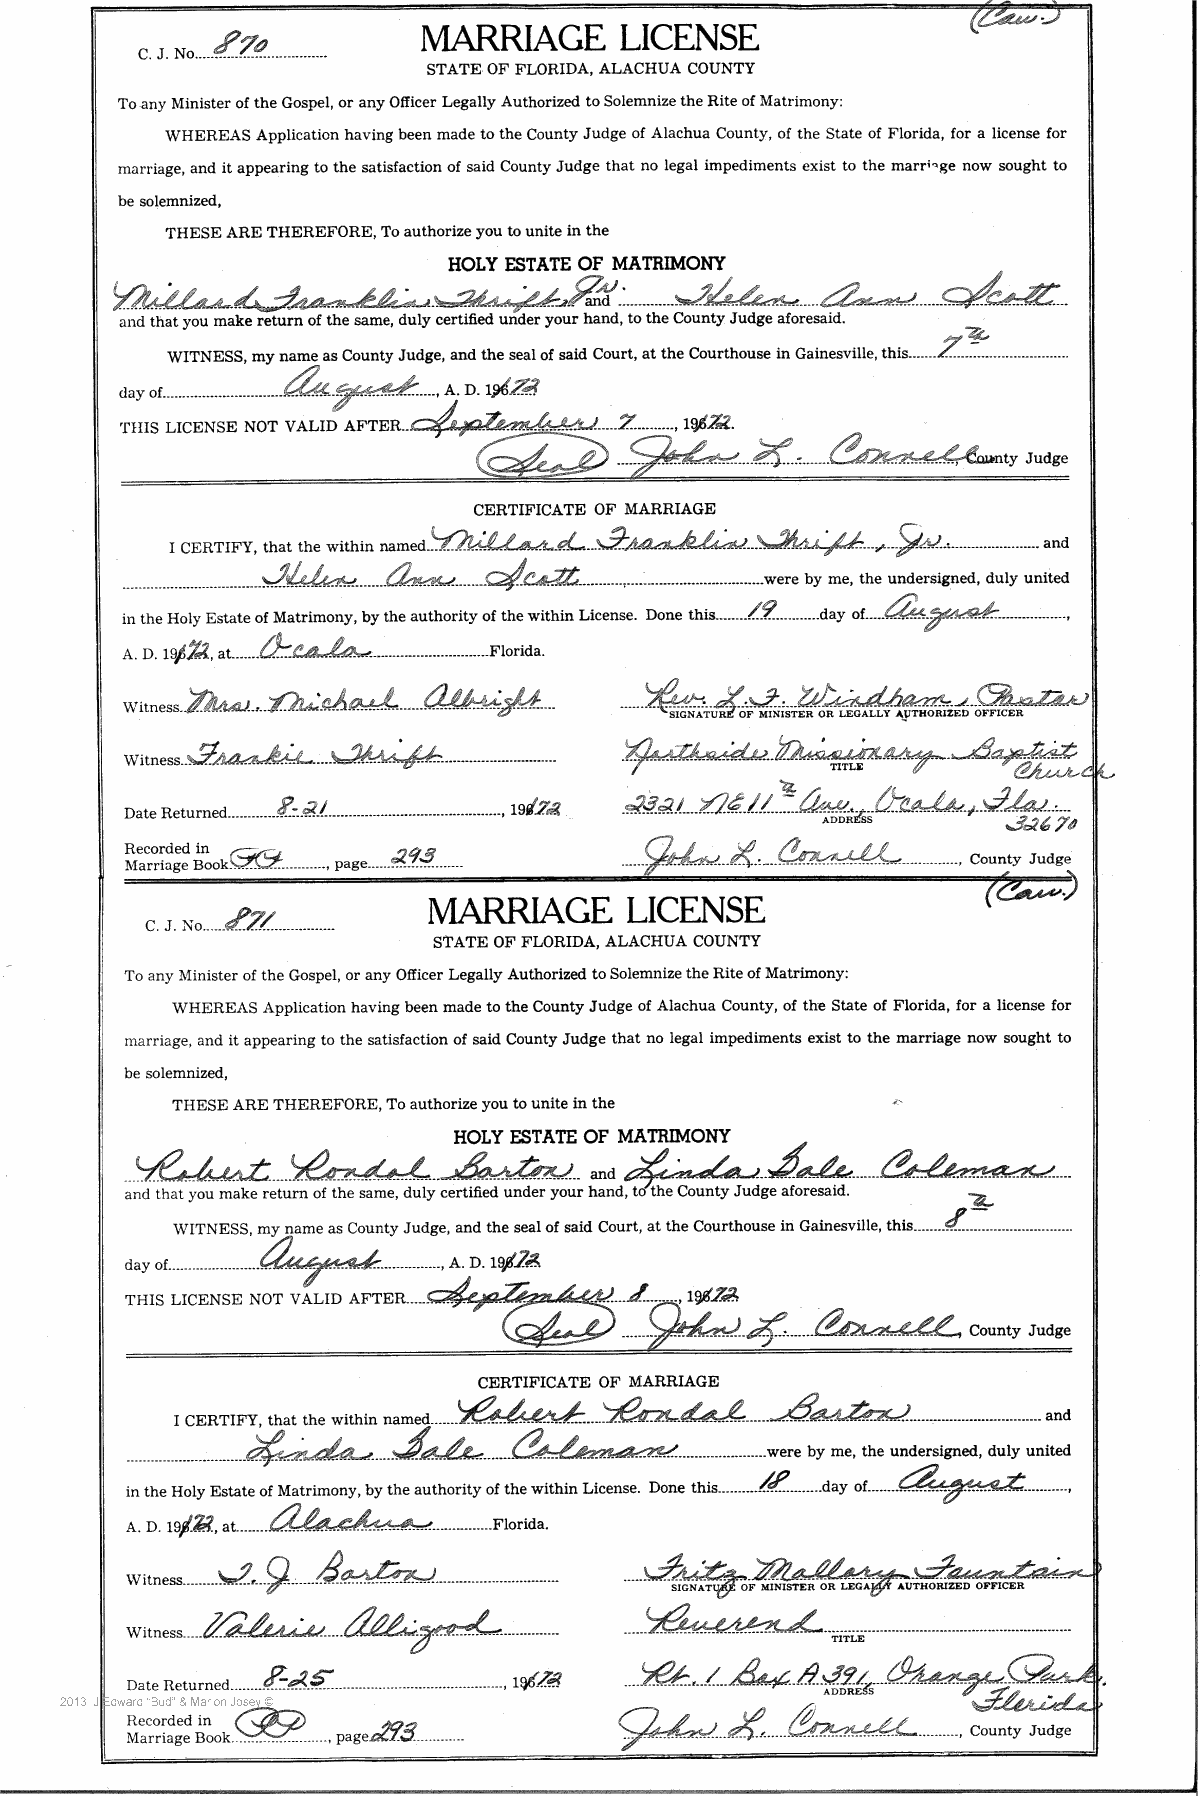 (Caw.)
C. J. No. 870
MARRIAGE LICENSE
STATE OF FLORIDA, ALACHUA COUNTY
To any Minister of the Gospel, or any Officer Legally Authorized to Solemnize the Rite of Matrimony:
WHEREAS Application having been made to the County Judge of Alachua County, of the State of Florida, for a license for
marriage, and it appearing to the satisfaction of said County Judge that no legal impediments exist to the marriage now sought to
be solemnized,
THESE ARE THEREFORE, To authorize you to unite in the
HOLY ESTATE OF MATRIMONY
Millard Franklin Thrift, Jr. and Helen Ann Scott
and that you make return of the same, duly certified under your hand, to the County Judge aforesaid.
WITNESS, my name as County Judge, and the seal of said Court, at the Courthouse in Gainesville, this 7th
day of August, A. D. 1972
THIS LICENSE NOT VALID AFTER September 7, 1972.
(Seal) John L. Connell, County Judge
CERTIFICATE OF MARRIAGE
I CERTIFY, that the within named Millard Franklin Thrift, Jr. and
Helen Ann Scott were by me, the undersigned, duly united
in the Holy Estate of Matrimony, by the authority of the within License. Done this 19 day of August,
A. D. 1972, at Ocala Florida.
Witness Mrs. Michael Albright Rev. L. F. Windham, Pastor
SIGNATURE OF MINISTER OR LEGALLY AUTHORIZED OFFICER
Witness Frankie Thrift Northside Missionary Baptist Church
TITLE
Date Returned 8-21, 1972 2321 NE 11th Ave., Ocala, Fla. 32670
ADDRESS
Recorded in
Marriage Book, page 293 John L. Connell, County Judge
(Caw.)
C. J. No. 871
MARRIAGE LICENSE
STATE OF FLORIDA, ALACHUA COUNTY
To any Minister of the Gospel, or any Officer Legally Authorized to Solemnize the Rite of Matrimony:
WHEREAS Application having been made to the County Judge of Alachua County, of the State of Florida, for a license for
marriage, and it appearing to the satisfaction of said County Judge that no legal impediments exist to the marriage now sought to
be solemnized,
THESE ARE THEREFORE, To authorize you to unite in the
HOLY ESTATE OF MATRIMONY
Robert Rondal Barton and Linda Gale Coleman
and that you make return of the same, duly certified under your hand, to the County Judge aforesaid.
WITNESS, my name as County Judge, and the seal of said Court, at the Courthouse in Gainesville, this 8th
day of August, A. D. 1972
THIS LICENSE NOT VALID AFTER September 8, 1972
(Seal) John L. Connell, County Judge
CERTIFICATE OF MARRIAGE
I CERTIFY, that the within named Robert Rondal Barton and
Linda Gale Coleman were by me, the undersigned, duly united
in the Holy Estate of Matrimony, by the authority of the within License. Done this 18 day of August,
A. D. 1972, at Alachua Florida.
Witness T. J. Barton Fritz Mallary Fountain
SIGNATURE OF MINISTER OR LEGALLY AUTHORIZED OFFICER
Witness Valerie Alligood Reverend
TITLE
Date Returned 8-25, 1972 Rt. 1 Box A 391, Orange Park, Florida
ADDRESS
2013 J Edward "Bud" & Marion Josey ©
Recorded in
Marriage Book, page 293 John L. Connell, County Judge